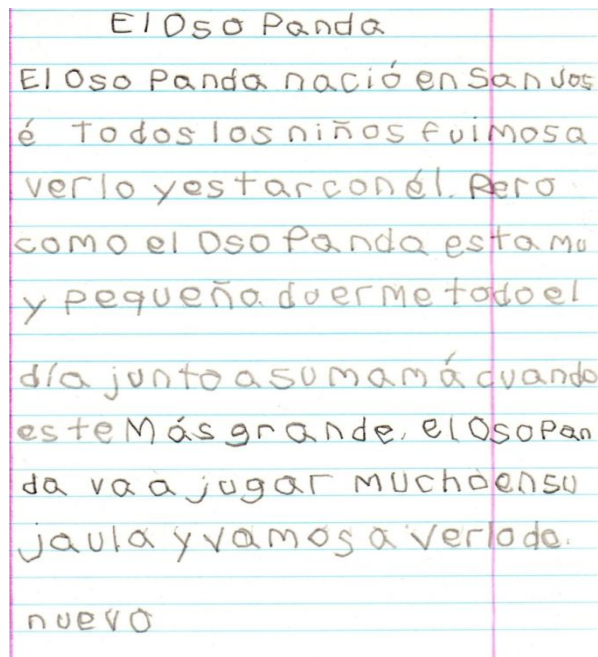 El Oso Panda
El Oso Panda nació en San Jos
é Todos los niños fuimos a
verlo y estar con él. Pero
como el Oso Panda esta mu
y pequeño. duerme todo el
día junto a su mamá cuando
este Más grande. el Oso Pan
da va a jugar mucho en su
jaula y vamos a verlo de.
nuevo